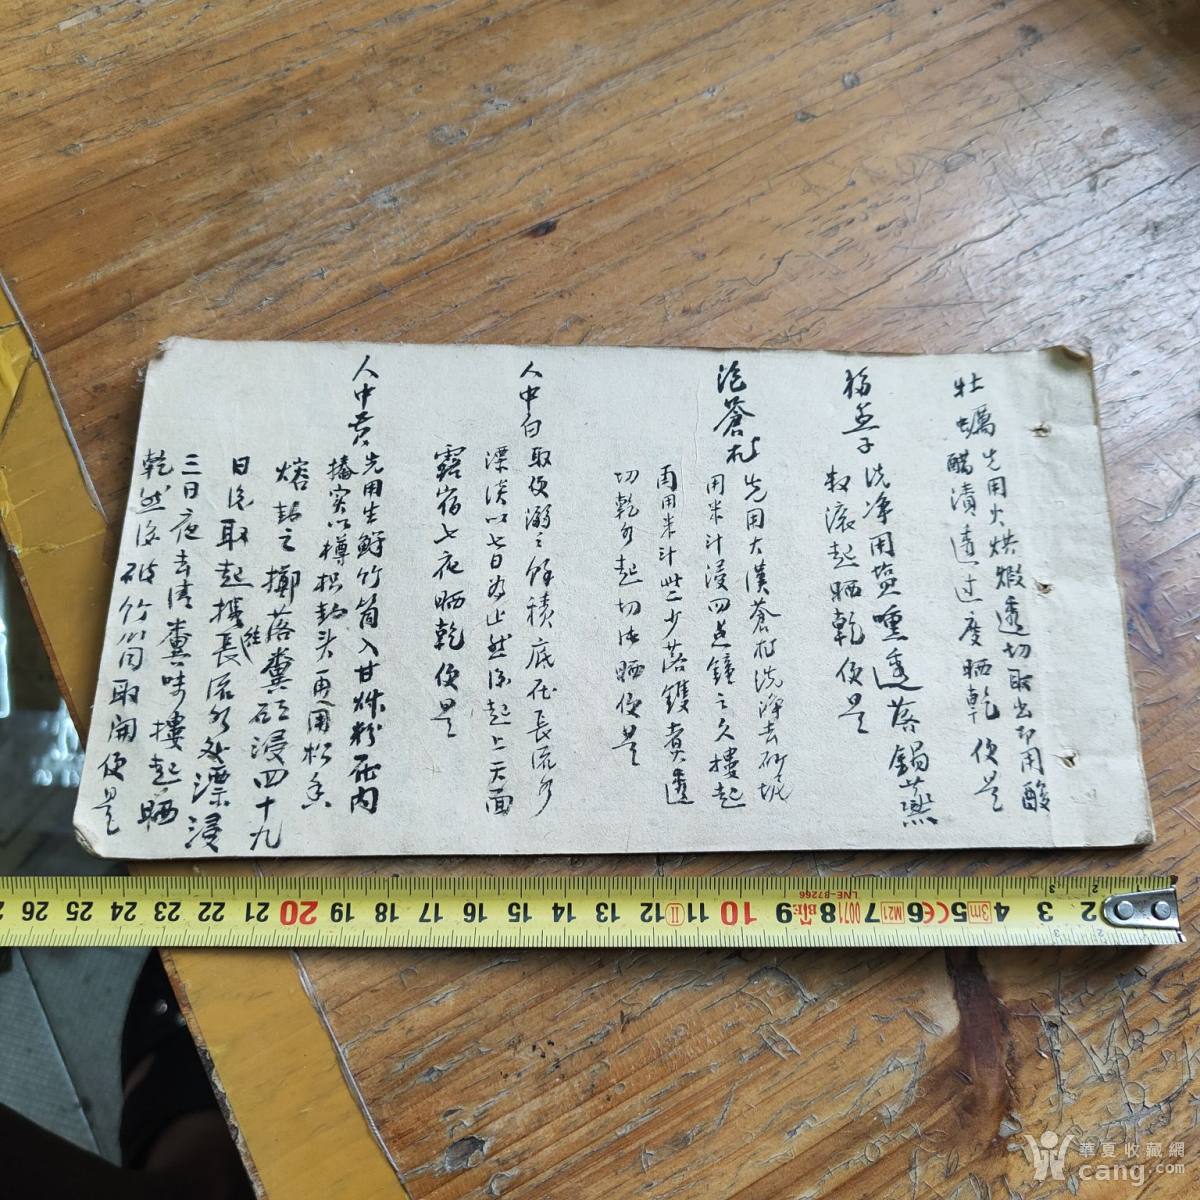 牡蠣先用火烘煅透切取出即用酸
醋漬透过度晒乾便是
洗净用塩 透落鍋蒸
数滚起晒乾便是
泡蒼术先用大漢蒼术洗净去砂坭
用米汁浸四点鐘之久搂起
再用米汁些少落鑊煮透
切乾水起切片晒便是
人中白取便溺之餘積底在長流水
漂淡以七日為止然后起上天面
露宿七夜晒乾便是
人中黄先用生鮮竹筒入甘草粉在內
搥实以樽枳封头再用松香
熔封之擲落糞缸浸四十九
日后取起搬往長流水处漂浸
三日夜去清糞味搂起晒
乾然后破竹筒取開便是
26 25 24 23 22 21 20 19 18 17 16 15 14 13 12 11 10 9 8 7 6 5 4 3 2
II
LNE-B7266
0071
M21
CE
3m
華夏收藏網
cang.com